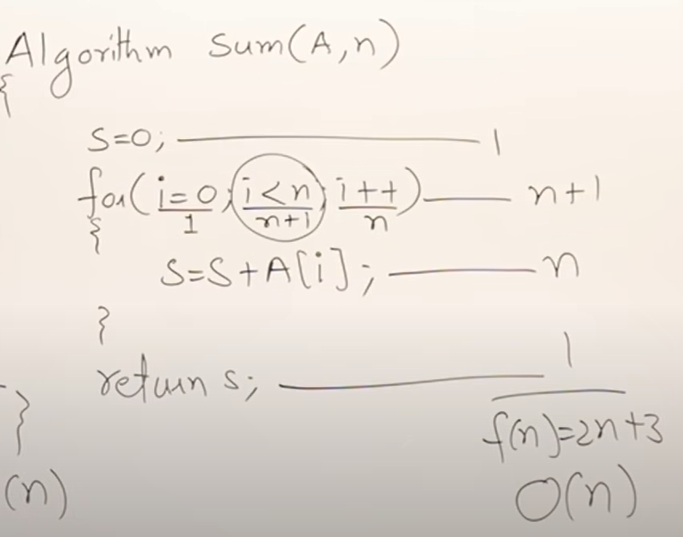 Algorithm Sum(A,n)
{
S=0; 1
for(i=0; i<n; i++) n+1
1 n+1 n
{
S=S+A[i]; n
}
return s; 1
} f(n)=2n+3
(n) O(n)